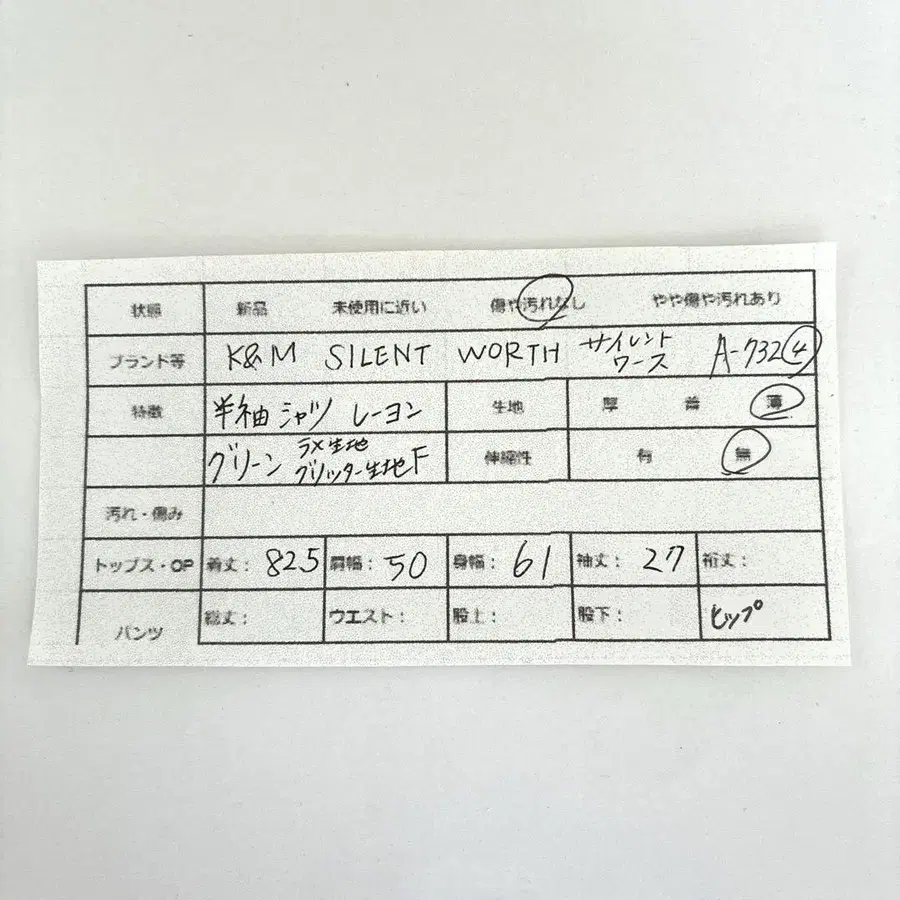 状態 新品 未使用に近い 傷や汚れなし やや傷や汚れあり
ブランド等 K&M SILENT WORTH サイレントワース A-732④
特徴 半袖シャツ レーヨン 生地 厚 普 薄
グリーン ラメ生地 グリッター生地 F 伸縮性 有 無
汚れ・傷み
トップス・OP 着丈: 82.5 肩幅: 50 身幅: 61 袖丈: 27 裄丈:
パンツ 総丈: ウエスト: 股上: 股下: ヒップ